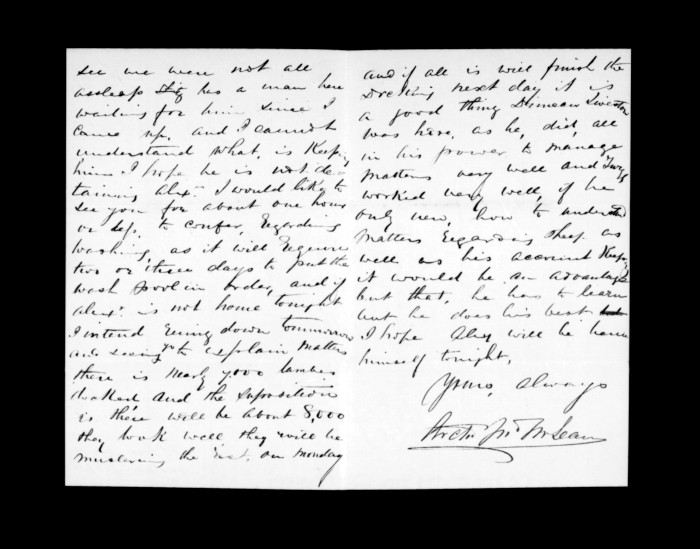 see we were not all
asleep has a man here
waiting for him since I
came up, and I cannot
understand what is Keeping
him I hope he is not de
taining Alex. I would like to
see you for about one hour
or so, to confer, Regarding
washing, as it will Require
two or three days to put the
wash pool in order, and if
Alex. is not home tonight
I intend going down tomorrow
and seeing you to explain matters
there is nearly 7,000 lambs
docked, and the suposition
is there will be about 8,000
they look well, they will be
mustering the rest, on Monday
and if all is well finish the
next day it is
a good thing Duncan
was here, as he, did, all
in his power to manage
matters very well and
worked very well, if he
only new, how to understand
matters Regarding sheep as
well as his account Keeping
it would be an advantage
but that, he has to learn
but he does his best
I hope Alex will be home
himself tonight,
Yours, always
McLean